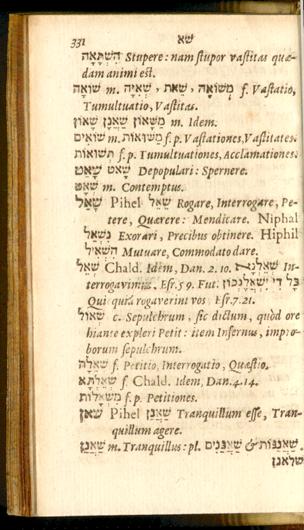 331 שא
הִשְׁתָּאָה Stupere: nam stupor vastitas quæ-
dam animi est.
שׁוֹאָה m. שְׁאִיָּה, שֵׁאת, מְשׁוֹאָה f. Vastatio,
Tumultuatio, Vastitas.
שָׁאוֹן שַׁאֲנָן מַשָּׁאוֹן m. Idem.
שׁוֹאִים m. מַשּׁוּאוֹת f. p. Vastationes, Vastitates.
תְּשׁוּאוֹת f. p. Tumultuationes, Acclamationes.
שָׁאַט שׁאט Depopulari: Spernere.
שְׁאָט m. Contemptus.
שָׁאַל Pihel שָׁאֵל Rogare, Interrogare, Pe-
tere, Quærere: Mendicare. Niphal
נִשְׁאַל Exorari, Precibus obtinere. Hiphil
הִשְׁאִיל Mutuare, Commodato dare.
שְׁאֵל Chald. Idem, Dan. 2. 10. שְׁאֵלְנָא In-
terrogavimus, Esr. 5 9. Fut. כָּל דִּי יִשְׁאֲלֶנְכוֹן
Qui quid rogaverint vos Esr. 7. 21.
שְׁאוֹל c. Sepulchrum, sic dictum, quòd ore
hiante expleri Petit: item Infernus, impro-
borum sepulchrum.
שְׁאֵלָה f. Petitio, Interrogatio, Quæstio.
שְׁאֵלְתָא f. Chald. Idem, Dan. 4. 14.
מִשְׁאָלוֹת f. p. Petitiones.
שׁאן Pihel שַׁאֲנַן Tranquillum esse, Tran-
quillum agere.
שַׁאֲנָן m. Tranquillus: pl. שַׁאֲנַנִּים & שַׁאֲנַנּוֹת.